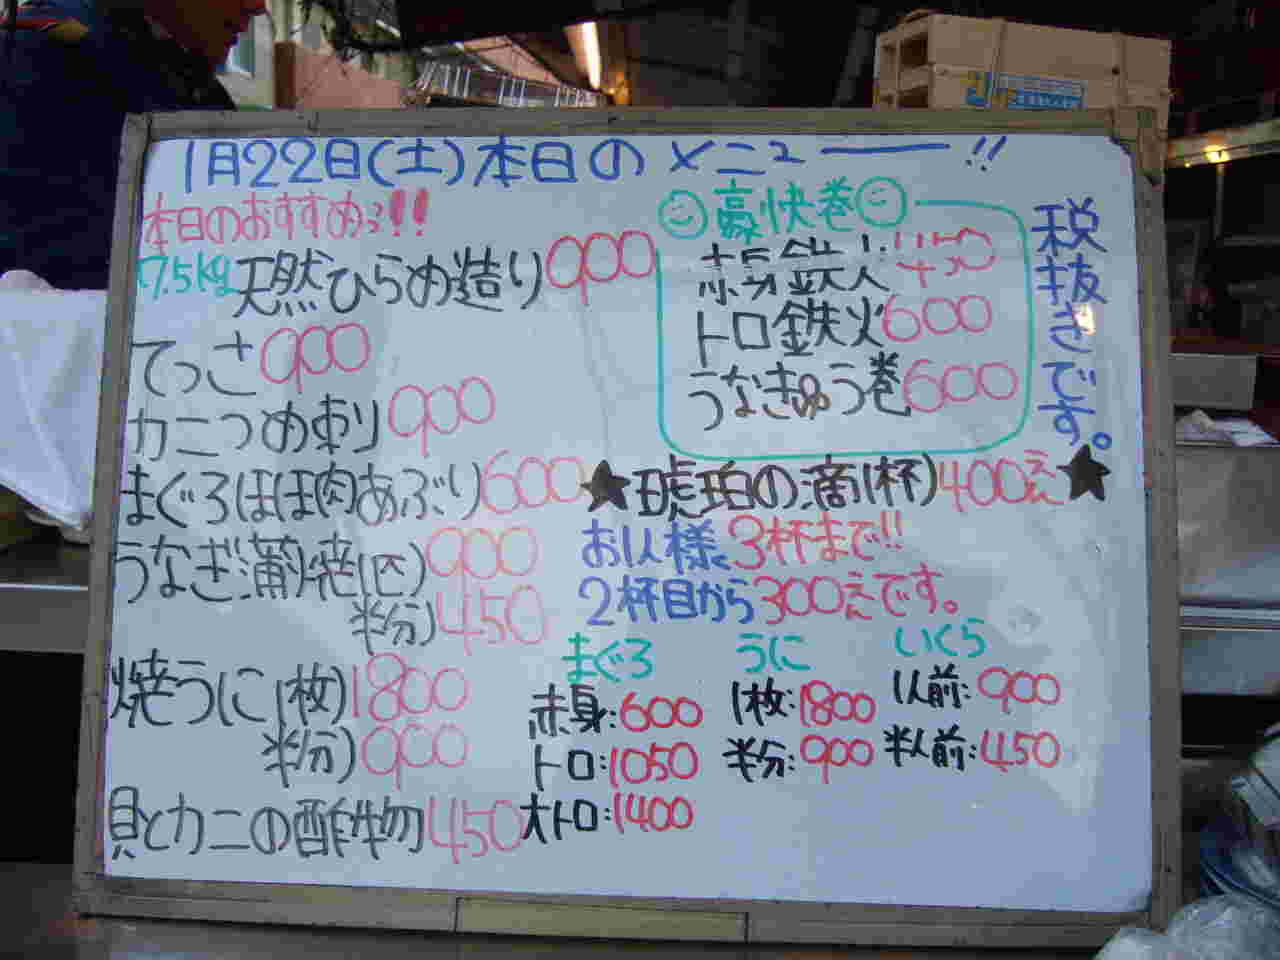 1月22日(土)本日のメニュー!!
本日のおすすめっ!!
7.5kg天然ひらめ造り900
てっさ900
カニつめ刺り900
まぐろほほ肉あぶり600
うなぎ蒲焼(1匹)900
半分)450
焼うに(1枚)1800
半分)900
貝とカニの酢物450
豪快巻
赤身鉄火450
トロ鉄火600
うなきゅう巻600
税抜きです。
★琥珀の滴(1杯)400え★
お1人様、3杯まで!!
2杯目から300えです。
まぐろ
赤身:600
トロ:1050
大トロ:1400
うに
1枚:1800
半分:900
いくら
1人前:900
半人前:450